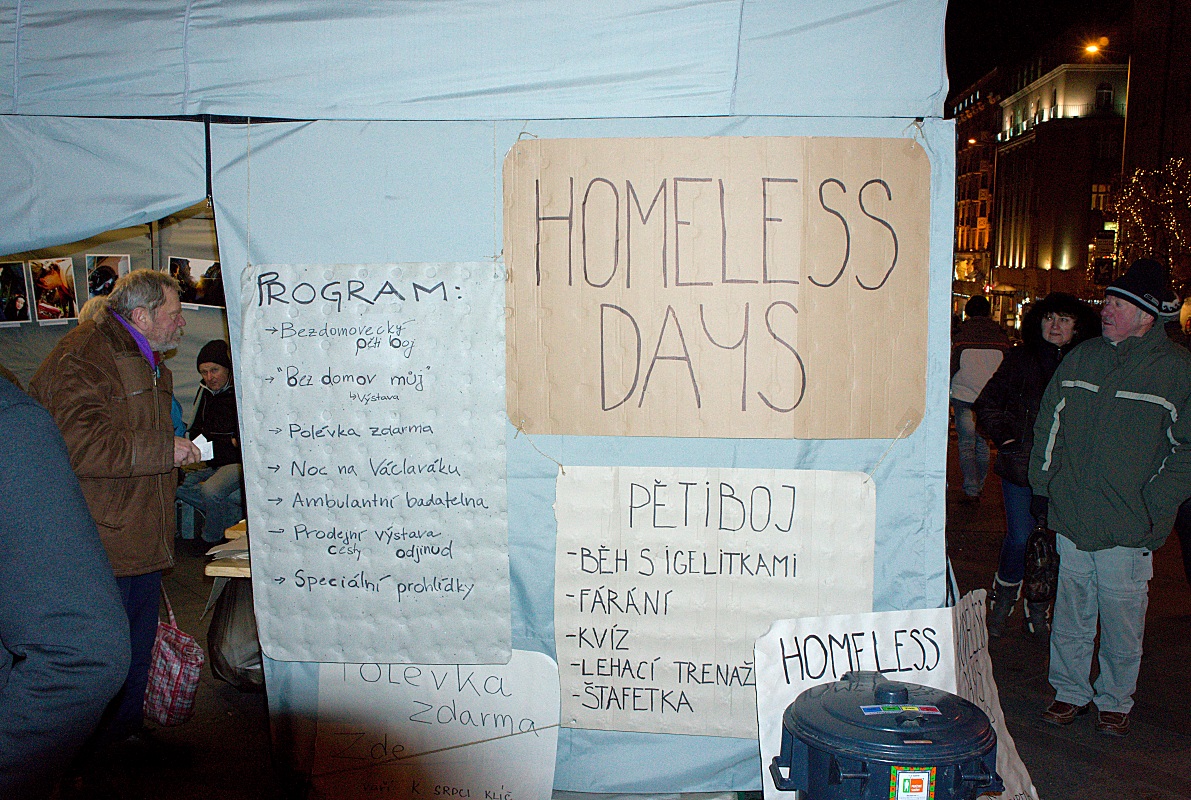 HOMELESS
DAYS
PROGRAM:
→ Bezdomovecký
pěti boj
→ "Bez domov můj"
↳ Výstava
→ Polévka zdarma
→ Noc na Václaváku
→ Ambulantní badatelna
→ Prodejní výstava
cesty odjinud
→ Speciální prohlídky
PĚTIBOJ
- BĚH S IGELITKAMI
- FÁRÁNÍ
- KVÍZ
- LEHACÍ TRENAŽ
- ŠTAFETKA
Polévka
zdarma
Zde
K SRDCI KLÍČ
HOMELESS